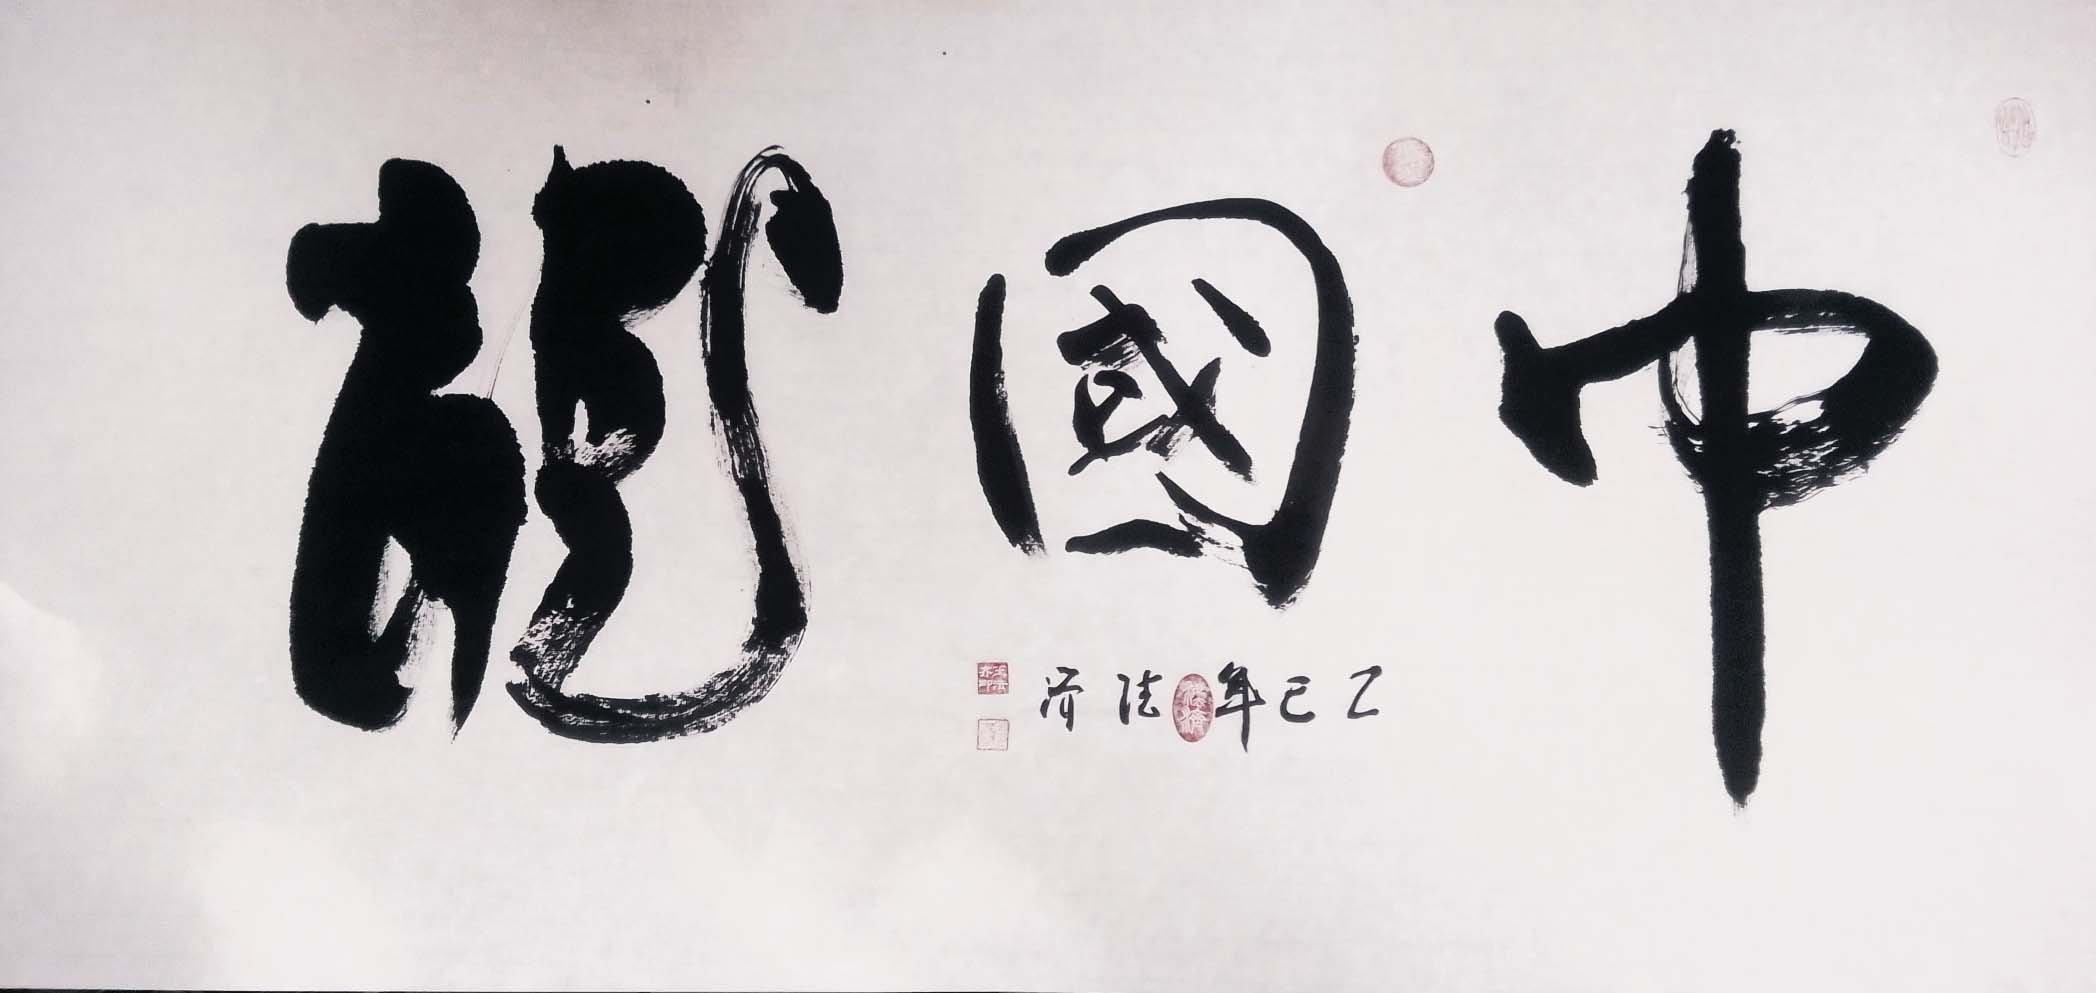 中國龍
乙巳年 法濟